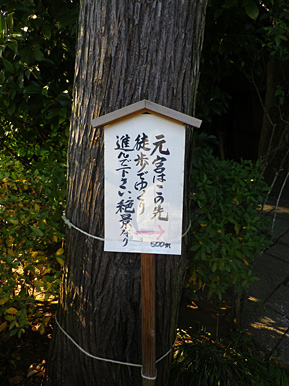 元宮はこの先
徒歩でゆっくり
進んで下さい絶景なり
500m